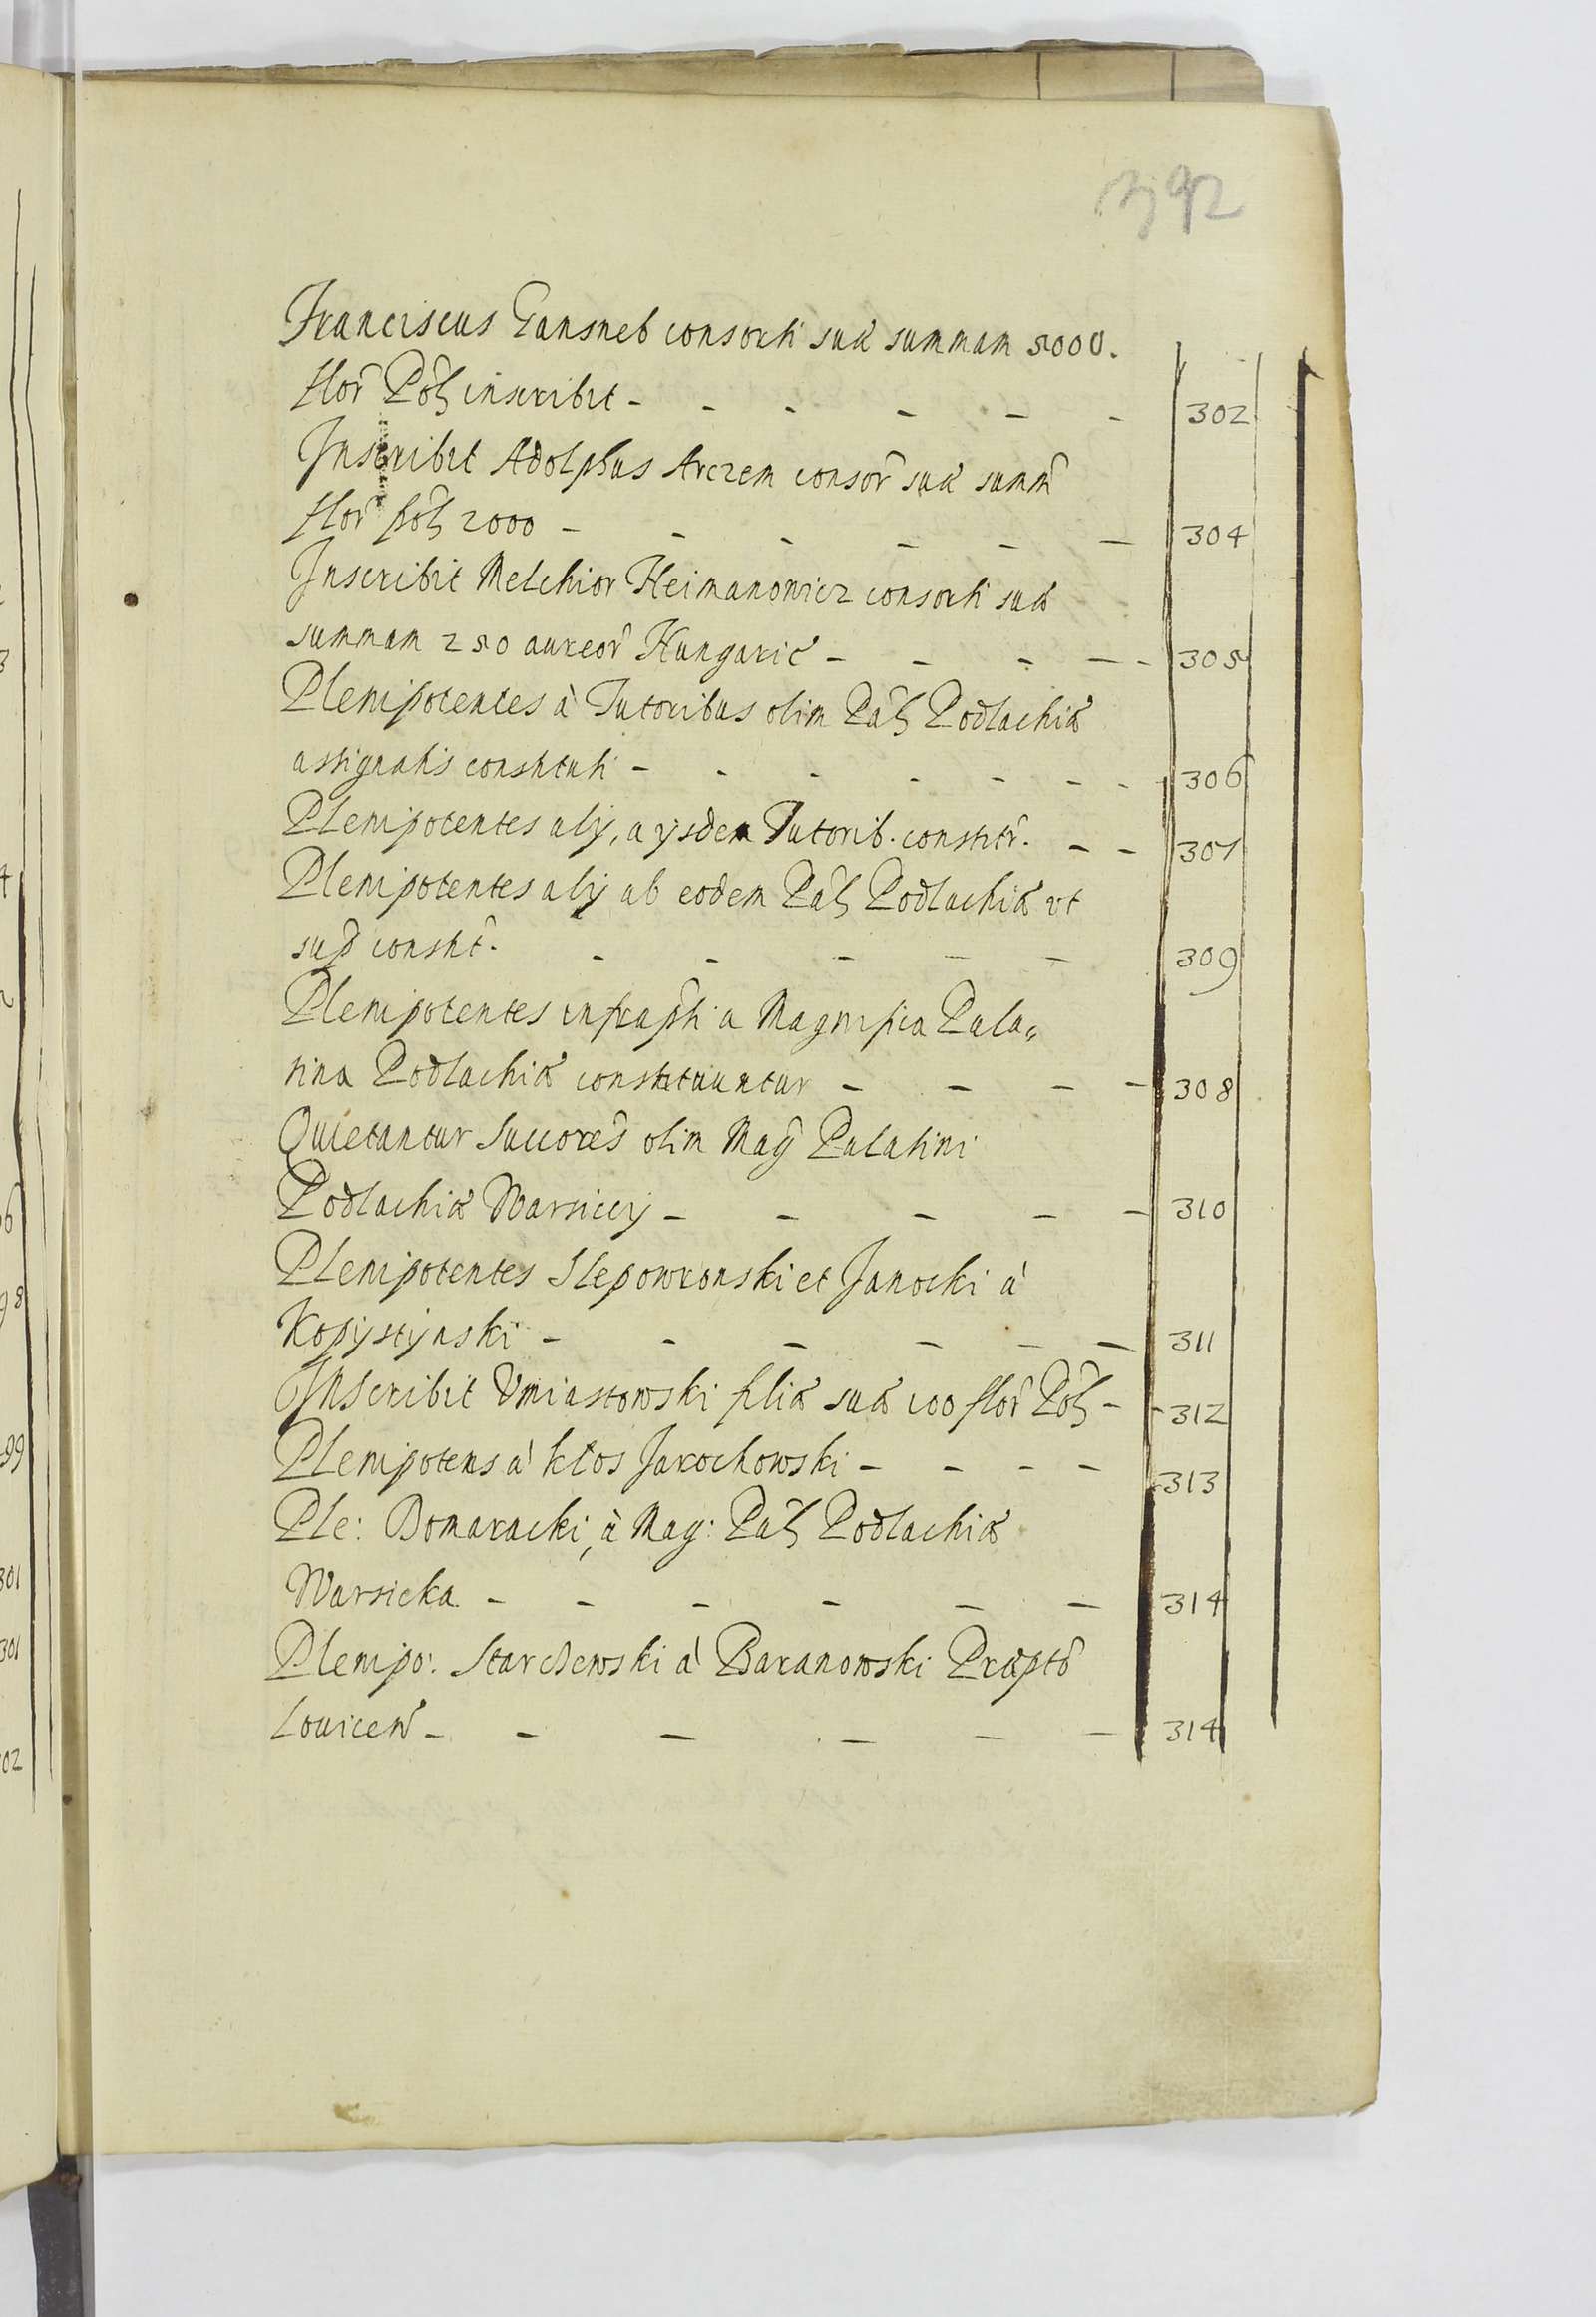 392
Franciscus Gansneb consorti suæ summam 5000.
flor̃ Pol̃ inscribit - - - - - - 302
Inscribit Adolphus Arczem consor̃ suæ summ̃
flor̃ pol̃ 2000 - - - - - - 304
Inscribit Melchior Heimanowicz consorti suæ
summam 250 aureor̃ Hungaric̃ - - - - - 305
Plenipotentes à Tutoribus olim Pal̃ Podlachiæ
assignatis constituti - - - - - - - 306
Plenipotentes alij, a ijsdem Tutorib. constitr̃. - - 307
Plenipotentes alij ab eodem Pal̃ Podlachiæ vt
sup̃ constit̃. - - - - - 309
Plenipotentes infrap̃ti a Magnifica Pala„
tina Podlachiæ constituuntur - - - - 308
Quietantur Succores̃ olim Mag̃ Palatini
Podlachiæ Warsiccij - - - - - 310
Plenipotentes Slepowronski et Janocki à
Kopijstijnski - - - - - - 311
Inscribit Vmiastowski filiæ suæ 100 flor̃ Pol̃ - - 312
Plenipotens à Klos Jarochowski - - - - 313
Ple: Domaracki, à Mag: Pal̃ Podlachiæ
Warsicka - - - - - - 314
Plenipo: Starczewski à Baranowski Præpto̊
Louiceñ - - - - - - 314